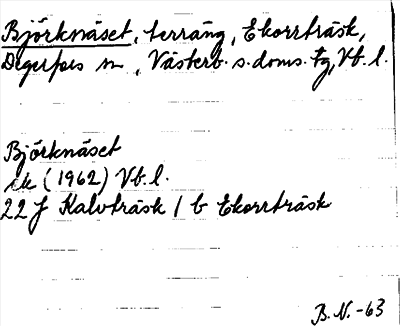 Björknäset, terräng, Ekorrträsk,
Degerfors sn, Västerb. s. doms. tg, Vb. l.
Björknäset
ek (1962) Vb. l.
22 J Kalvträsk 1 b Ekorrträsk
B.N. -63